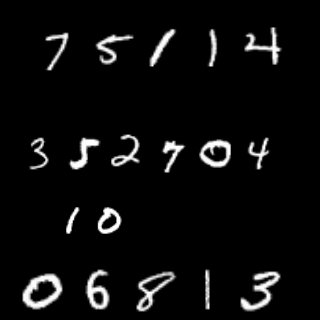 7 5 1 1 4
3 5 2 7 0 4
1 0
0 6 8 1 3